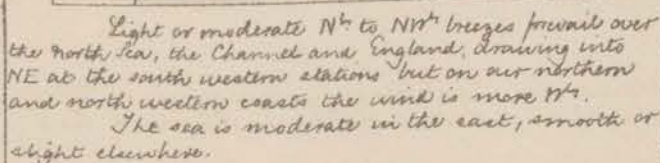 Light or moderate Nly to NWly breezes prevail over
the North Sea, the Channel and England, drawing into
NE at the south western stations but on our northern
and north western coasts the wind is more Wly.
The sea is moderate in the east, smooth or
slight elsewhere.